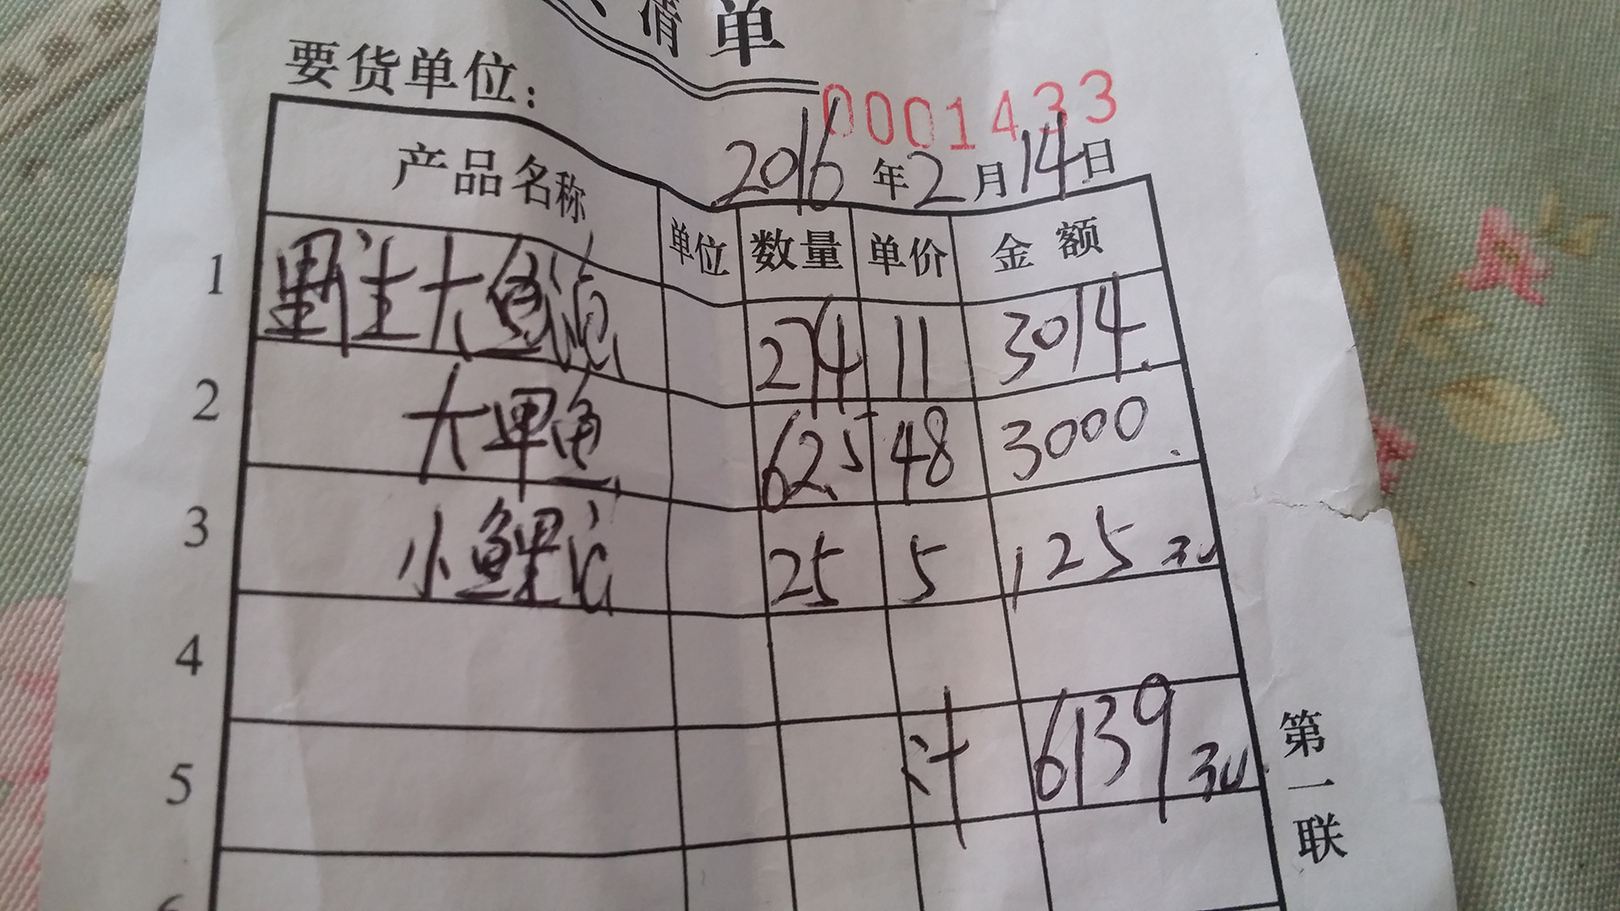 清单
要货单位：
0001433
2016年2月14日
产品名称 单位 数量 单价 金额
1 野生大鱼 274 11 3014.
2 大甲鱼 62.5 48 3000.
3 小鲤 25 5 125
4
5 计 6139
第一联